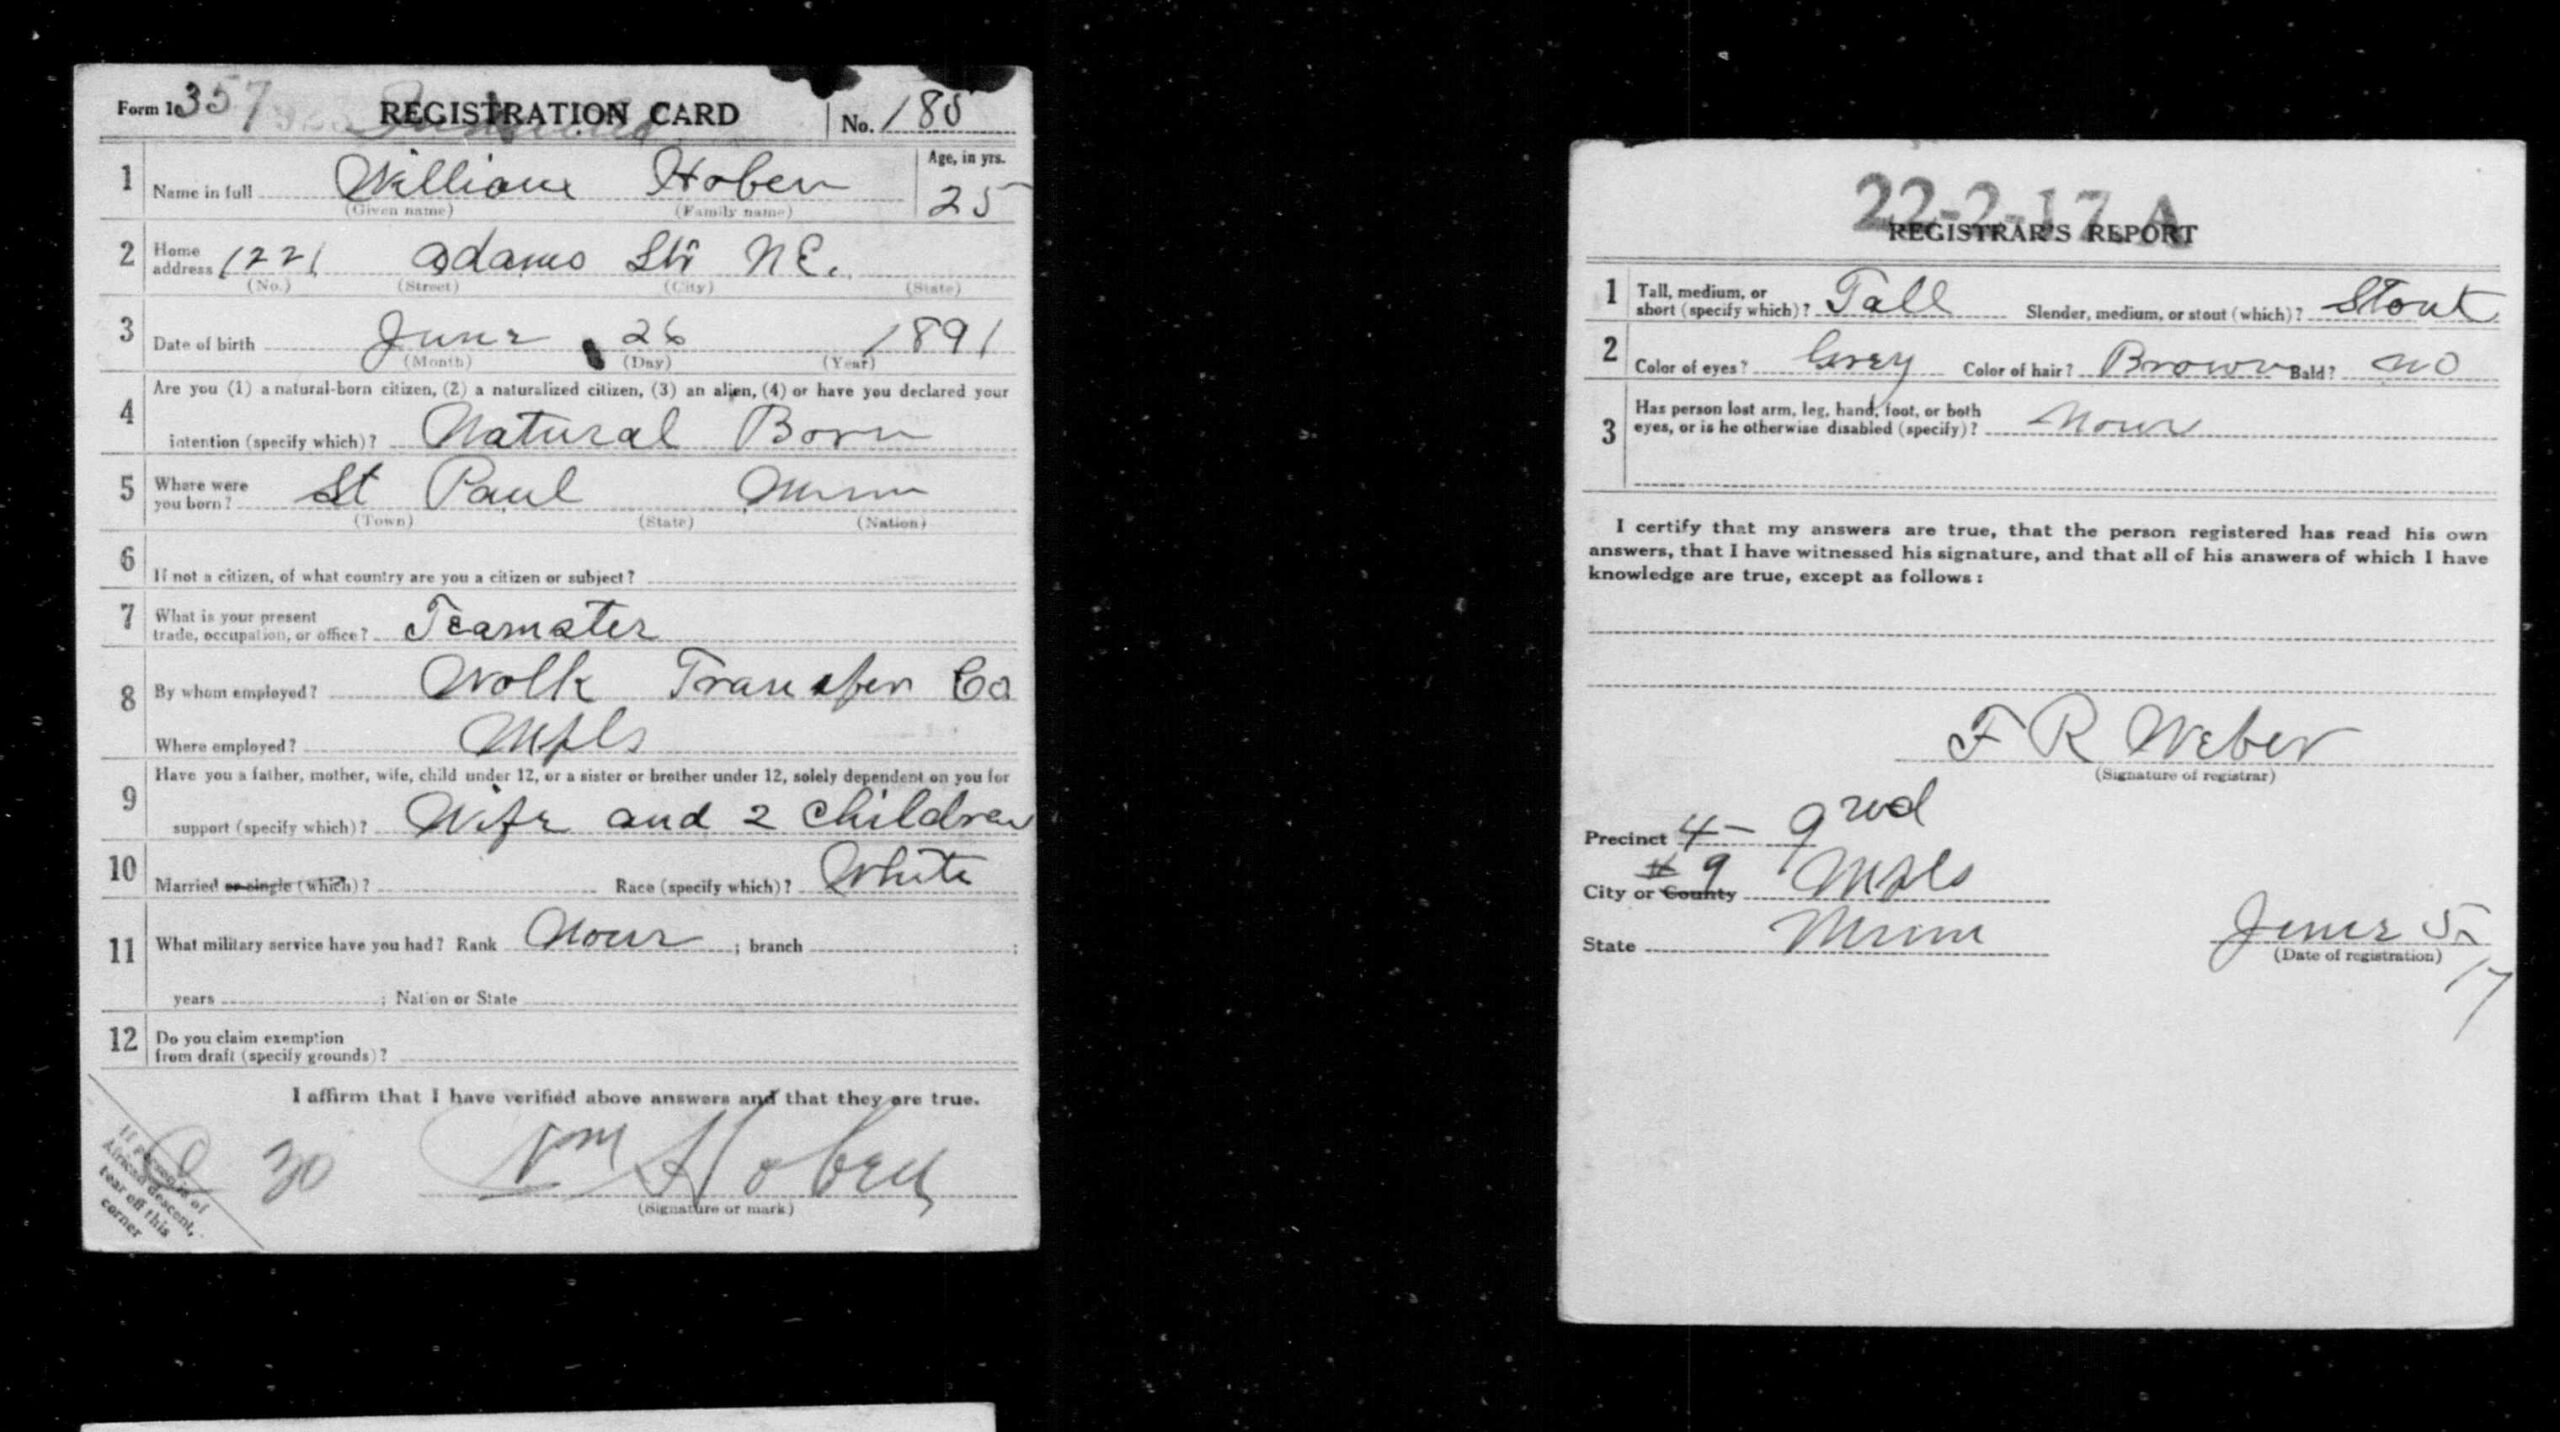 Form 1 357 REGISTRATION CARD No. 185
1 Name in full William Hoben Age, in yrs. 25
(Given name) (Family name)
2 Home address 1221 Adams Str N E.
(No.) (Street) (City) (State)
3 Date of birth June 26 1891
(Month) (Day) (Year)
Are you (1) a natural-born citizen, (2) a naturalized citizen, (3) an alien, (4) or have you declared your
4 intention (specify which)? Natural Born
5 Where were you born? St Paul Minn
(Town) (State) (Nation)
6 If not a citizen, of what country are you a citizen or subject?
7 What is your present trade, occupation, or office? Teamster
8 By whom employed? Wolk Transfer Co
Where employed? Mpls
Have you a father, mother, wife, child under 12, or a sister or brother under 12, solely dependent on you for
9 support (specify which)? Wife and 2 children
10 Married or single (which)? Race (specify which)? White
11 What military service have you had? Rank None ; branch ;
years ; Nation or State
12 Do you claim exemption from draft (specify grounds)?
I affirm that I have verified above answers and that they are true.
30 Wm Hoben
(Signature or mark)
If person is of
African descent,
tear off this
corner
22-2-17. A
REGISTRAR'S REPORT
1 Tall, medium, or short (specify which)? Tall Slender, medium, or stout (which)? Stout
2 Color of eyes? Grey Color of hair? Brown Bald? no
3 Has person lost arm, leg, hand, foot, or both eyes, or is he otherwise disabled (specify)? None
I certify that my answers are true, that the person registered has read his own
answers, that I have witnessed his signature, and that all of his answers of which I have
knowledge are true, except as follows:
F R Weber
(Signature of registrar)
Precinct 4 - 9 wd
# 9
City or County Mpls
State Minn June 5, 17
(Date of registration)